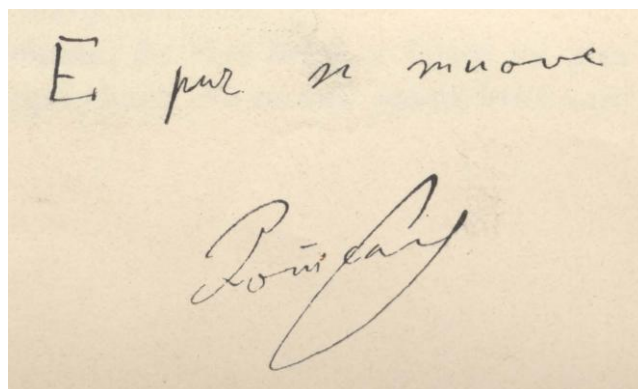 E pur si muove
Poincaré